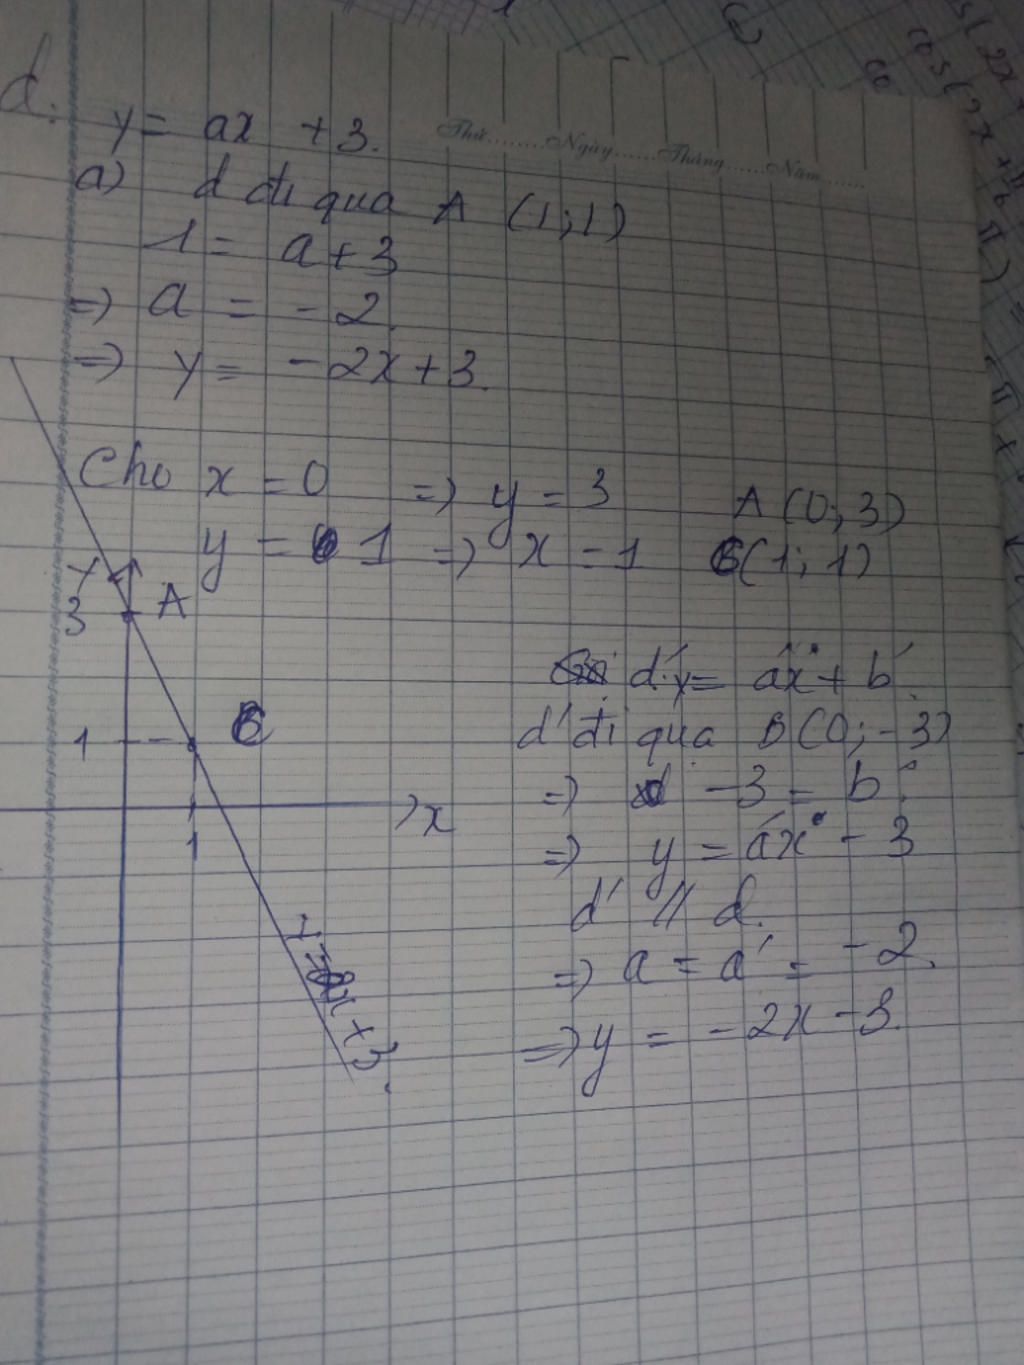 d.
y = ax + 3.
Thứ........Ngày......Tháng......Năm......
a) d đi qua A (1;1)
1 = a + 3
=> a = - 2.
=> y = - 2x + 3.
Cho x = 0 => y = 3 A (0; 3)
y = 1 => x = 1 C(1; 1)
y
3 A
1 C
x
1
+ 3.
d': y = a'x + b'.
d' đi qua B(0; - 3)
=> - 3 = b'
=> y = a'x - 3
d' // d.
=> a = a' = - 2.
=> y = - 2x - 3.